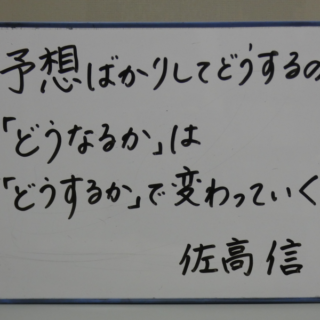 予想ばかりしてどうするの
「どうなるか」は
「どうするか」で変わっていく
佐高信